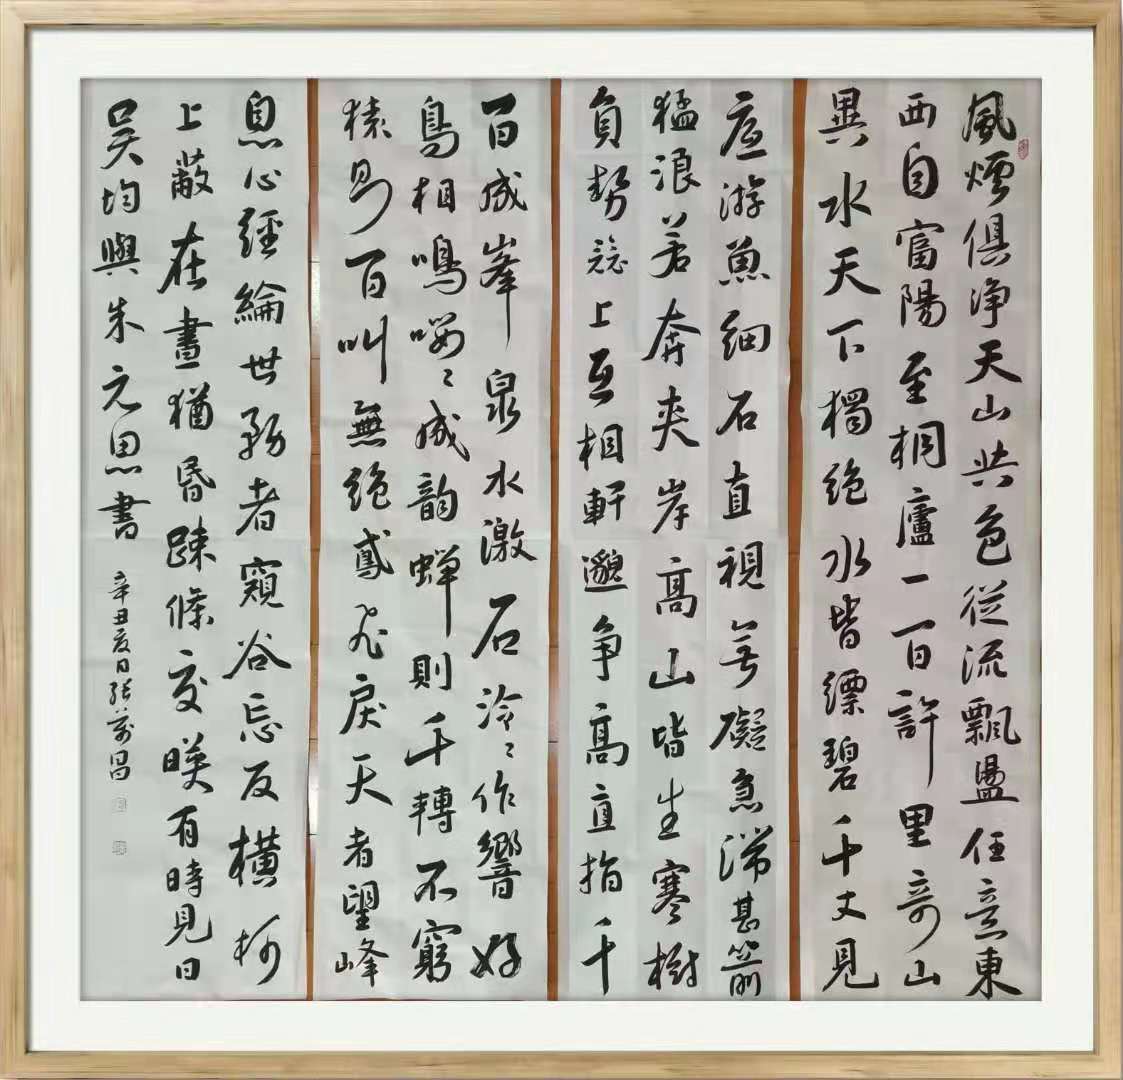 風煙俱净天山共色從流飄盪任意東
西自富陽至桐廬一百許里奇山
異水天下獨絕水皆縹碧千丈見
底游魚細石直視無礙急湍甚箭
猛浪若奔夾岸高山皆生寒樹
負勢競上互相軒邈争高直指千
百成峯泉水激石泠〻作響好
鳥相鳴嚶〻成韵蝉則千轉不窮
猿則百叫無絕鳶飛戾天者望峰
息心經綸世務者窺谷忘反橫柯
上蔽在晝猶昏疎條交暎有時見日
吳均與朱元思書
辛丑夏日張萬昌